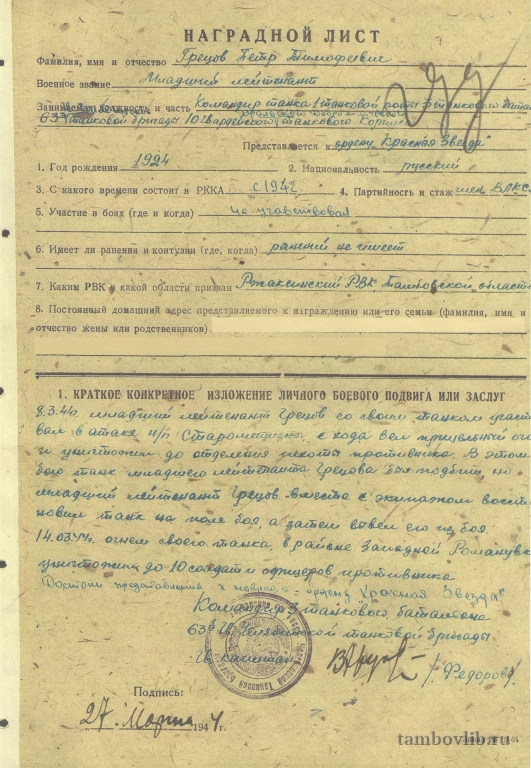 НАГРАДНОЙ ЛИСТ
Фамилия, имя и отчество Грецов Петр Тимофеевич
Военное звание Младший лейтенант
должность и часть Командир танка 1 танковой роты 3 танкового
63 танковой бригады 10 Гвардейского танкового
Представляется к ордену „Красная Звезда"
1. Год рождения 1924 2. Национальность русский
3. С какого времени состоит в РККА с 1942 4. Партийность и стаж член
5. Участие в боях (где и когда) не участвовал
6. Имеет ли ранения и контузии (где, когда) ранений не имеет
7. Каким РВК и какой области призван Ржаксинский РВК, Тамбовской области
8. Постоянный домашний адрес представляемого к награждению или его семьи (фамилия, имя и
отчество жены или родственников)
1. КРАТКОЕ КОНКРЕТНОЕ ИЗЛОЖЕНИЕ ЛИЧНОГО БОЕВОГО ПОДВИГА ИЛИ ЗАСЛУГ
8.3.44г. младший лейтенант Грецов со своим танком участ
вовал в атаке н/п с хода вел прицельный
и уничтожил до отделения пехоты противника. В этом
бою танк младшего лейтенанта Грецова был подбит, но
младший лейтенант Грецов вместе с экипажем восста
новил танк на поле боя, а затем вывел его из боя.
14.03.44г. огнем своего танка, в районе Западной
уничтожил до 10 солдат и офицеров противника
Достоин представления к ордену „Красная Звезда"
Командир 3 танкового батальона
63 Гв Челябинской танковой бригады
Гв капитан /Федоров/
Подпись:
„27" Марта 1944г.
tambovlib.ru